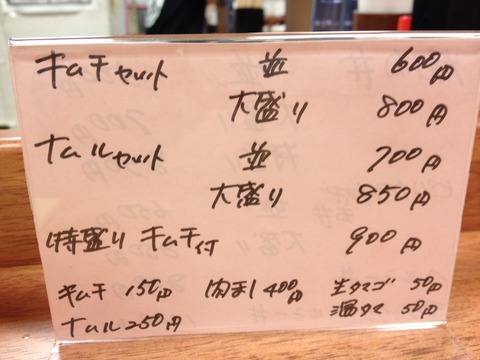 キムチセット 並 600円
大盛り 800円
ナムルセット 並 700円
大盛り 850円
特盛り キムチ付 900円
キムチ 150円 肉まし 400円 生タマゴ 50円
ナムル 250円 温タマ 50円